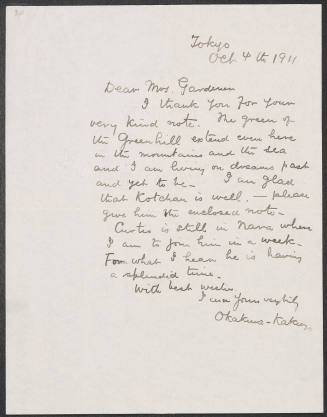 Tokyo
Oct 4th 1911
Dear Mrs. Gardener
I thank you for your
very kind note. The green of
the Greenhill extend even here
in the mountains and the sea
and I am living on dreams past
and yet to be - I am glad
that Kotchan is well, - please
give him the enclosed note -
Curtis is still in Nara where
I am to join him in a week -
From what I hear he is having
a splendid time -
With best wishes
I am yours
Okakura-Kakuzo